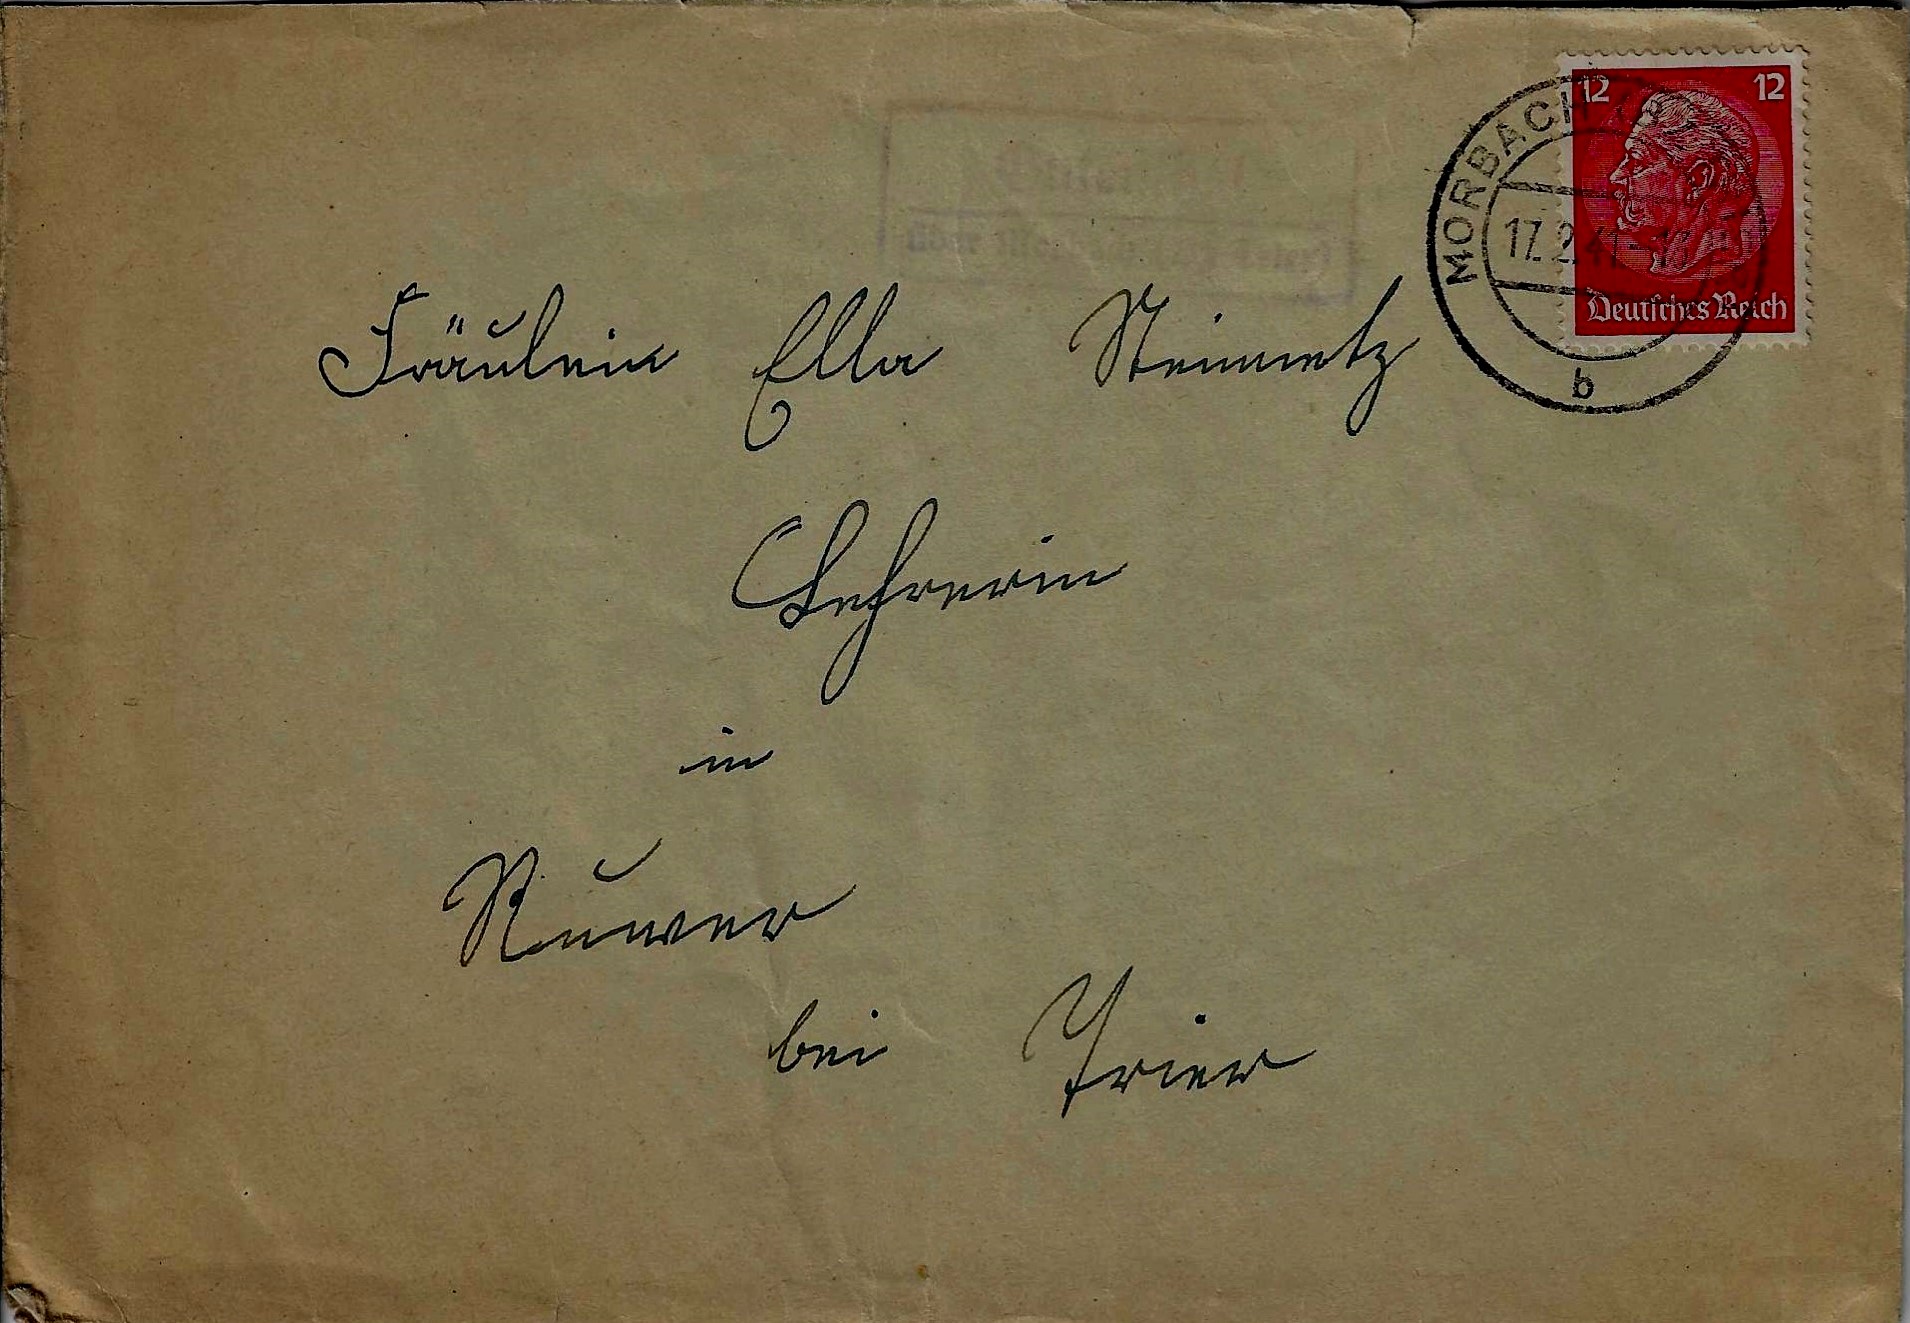 12 12
MORBACH
17.2.41
Deutsches Reich
b
über
Fräulein Ella Steinmetz
Lehrerin
in
Ruwer
bei Trier